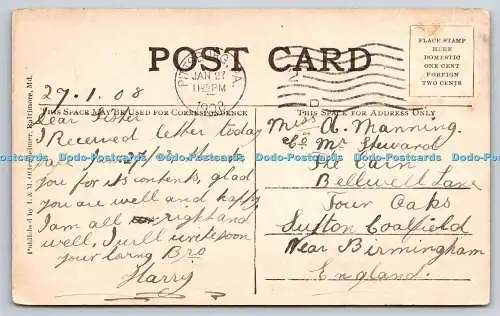 POST CARD
PLACE STAMP
HERE
DOMESTIC
ONE CENT
FOREIGN
TWO CENTS
JAN 27
1908
27.1.08
THIS SPACE MAY BE USED FOR CORRESPONDENCE
THIS SPACE FOR ADDRESS ONLY
Dear Sister
I Received letter today
you for its contents, glad
you are well and happy,
I am all right and
well, I will write soon
your loving Bro
Harry
Miss A. Manning.
C/o Mr Steward
The Cairn
Bellwell Lane
Four Oaks
Sutton Coalfield
Near Birmingham
England.
Published by I. & M. Ottenheimer, Baltimore, Md.
Dodo-Postcards Dodo-Postcards Dodo-Postcards Dodo-Postcards